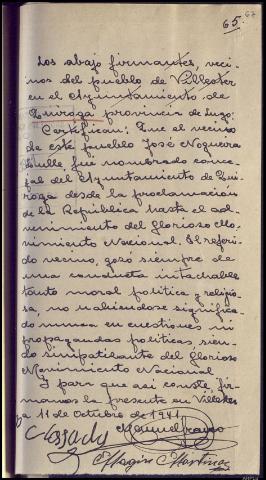 65.
67
Los abajo firmantes, veci-
nos del pueblo de Villester
en el Ayuntamiento de
Quiroga provincia de Lugo;
Certifican: Que el vecino
de este pueblo José Nogueira
fué nombrado conce-
jal del Ayuntamiento de Qui-
roga desde la proclamación
de la República hasta el ad-
venimiento del Glorioso Mo-
vimiento Nacional. El referi-
do vecino, gozó siempre de
una conducta intachable
tanto moral política y religio-
sa, no habiendose significa-
do nunca en cuestiones ni
propagandas políticas, sien-
do simpatizante del Glorioso
Movimiento Nacional
Y para que asi conste, fir-
mamos la presente en Villester
a 11 de Octubre de 1941.
Manuel
Magin Martinez